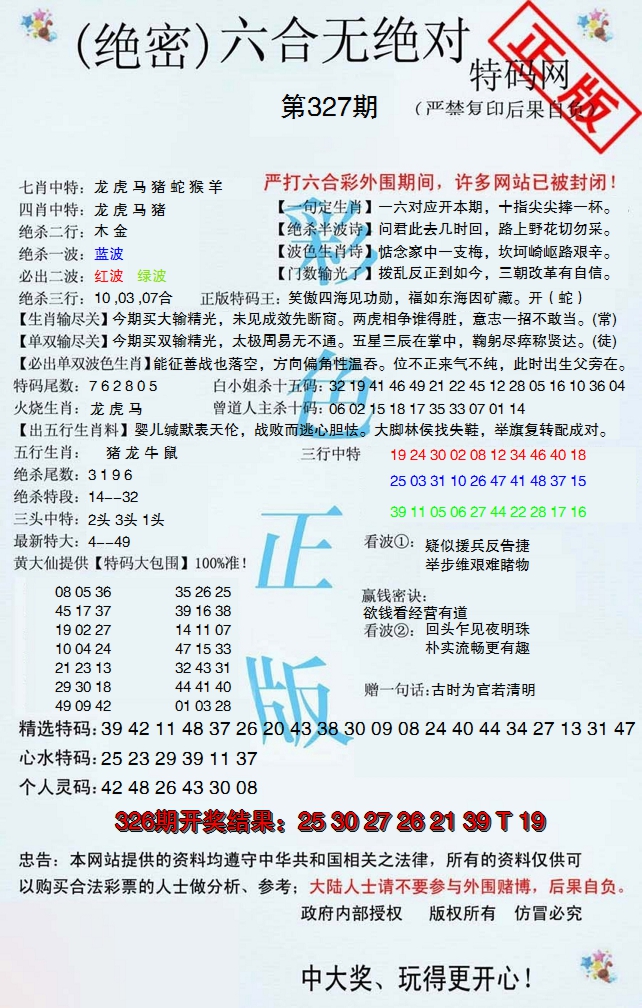 (绝密)六合无绝对
特码网
正版
第327期
(严禁复印后果自负)
严打六合彩外围期间，许多网站已被封闭！
七肖中特：龙虎马猪蛇猴羊
四肖中特：龙虎马猪
【一句定生肖】一六对应开本期，十指尖尖捧一杯。
绝杀二行：木 金
【绝杀半波诗】问君此去几时回，路上野花切勿采。
绝杀一波：蓝波
【波色生肖诗】惦念家中一支梅，坎坷崎岖路艰辛。
必出二波：红波 绿波
【门数输光了】拨乱反正到如今，三朝改革有自信。
绝杀三行：10 ,03 ,07合
正版特码王：笑傲四海见功勋，福如东海因矿藏。开（蛇）
【生肖输尽关】今期买大输精光，未见成效先断窗。两虎相争谁得胜，意志一招不敢当。(常)
【单双输尽关】今期买双输精光，太极周易无不通。五星三辰在掌中，鞠躬尽瘁称贤达。(徒)
【必出单双波色生肖】能征善战也落空，方向偏角性温吞。位不正来气不纯，此时出生父旁在。
特码尾数：7 6 2 8 0 5
白小姐杀十五码：32 19 41 46 49 21 22 45 12 28 05 16 10 36 04
火烧生肖：龙 虎 马
曾道人主杀十码：06 02 15 18 17 35 33 07 01 14
【出五行生肖料】婴儿缄默表天伦，战败而逃心胆怯。大脚林侯找失鞋，举旗复转配成对。
五行生肖：猪 龙 牛 鼠
三行中特
19 24 30 02 08 12 34 46 40 18
绝杀尾数：3 1 9 6
25 03 31 10 26 47 41 48 37 15
绝杀特段：14--32
39 11 05 06 27 44 22 28 17 16
三头中特：2头 3头 1头
最新特大：4--49
看波①：疑似援兵反告捷
举步维艰难睹物
黄大仙提供【特码大包围】100%准！
08 05 36 35 26 25
45 17 37 39 16 38
19 02 27 14 11 07
10 04 24 47 15 33
21 23 13 32 43 31
29 30 18 44 41 40
49 09 42 01 03 28
赢钱密诀：
欲钱看经营有道
看波②：回头乍见夜明珠
朴实流畅更有趣
赠一句话:古时为官若清明
彩色正版
精选特码:39 42 11 48 37 26 20 43 38 30 09 08 24 40 44 34 27 13 31 47
心水特码:25 23 29 39 11 37
个人灵码:42 48 26 43 30 08
326期开奖结果：25 30 27 26 21 39 T 19
忠告：本网站提供的资料均遵守中华共和国相关之法律，所有的资料仅供可
以购买合法彩票的人士做分析、参考；大陆人士请不要参与外围赌博，后果自负。
政府内部授权 版权所有 仿冒必究
中大奖、玩得更开心！